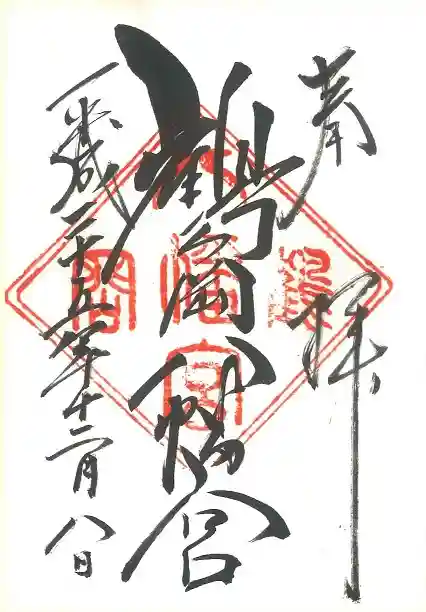 奉拝
鶴岡八幡宮
平成二十五年十二月八日
鶴岡八幡宮